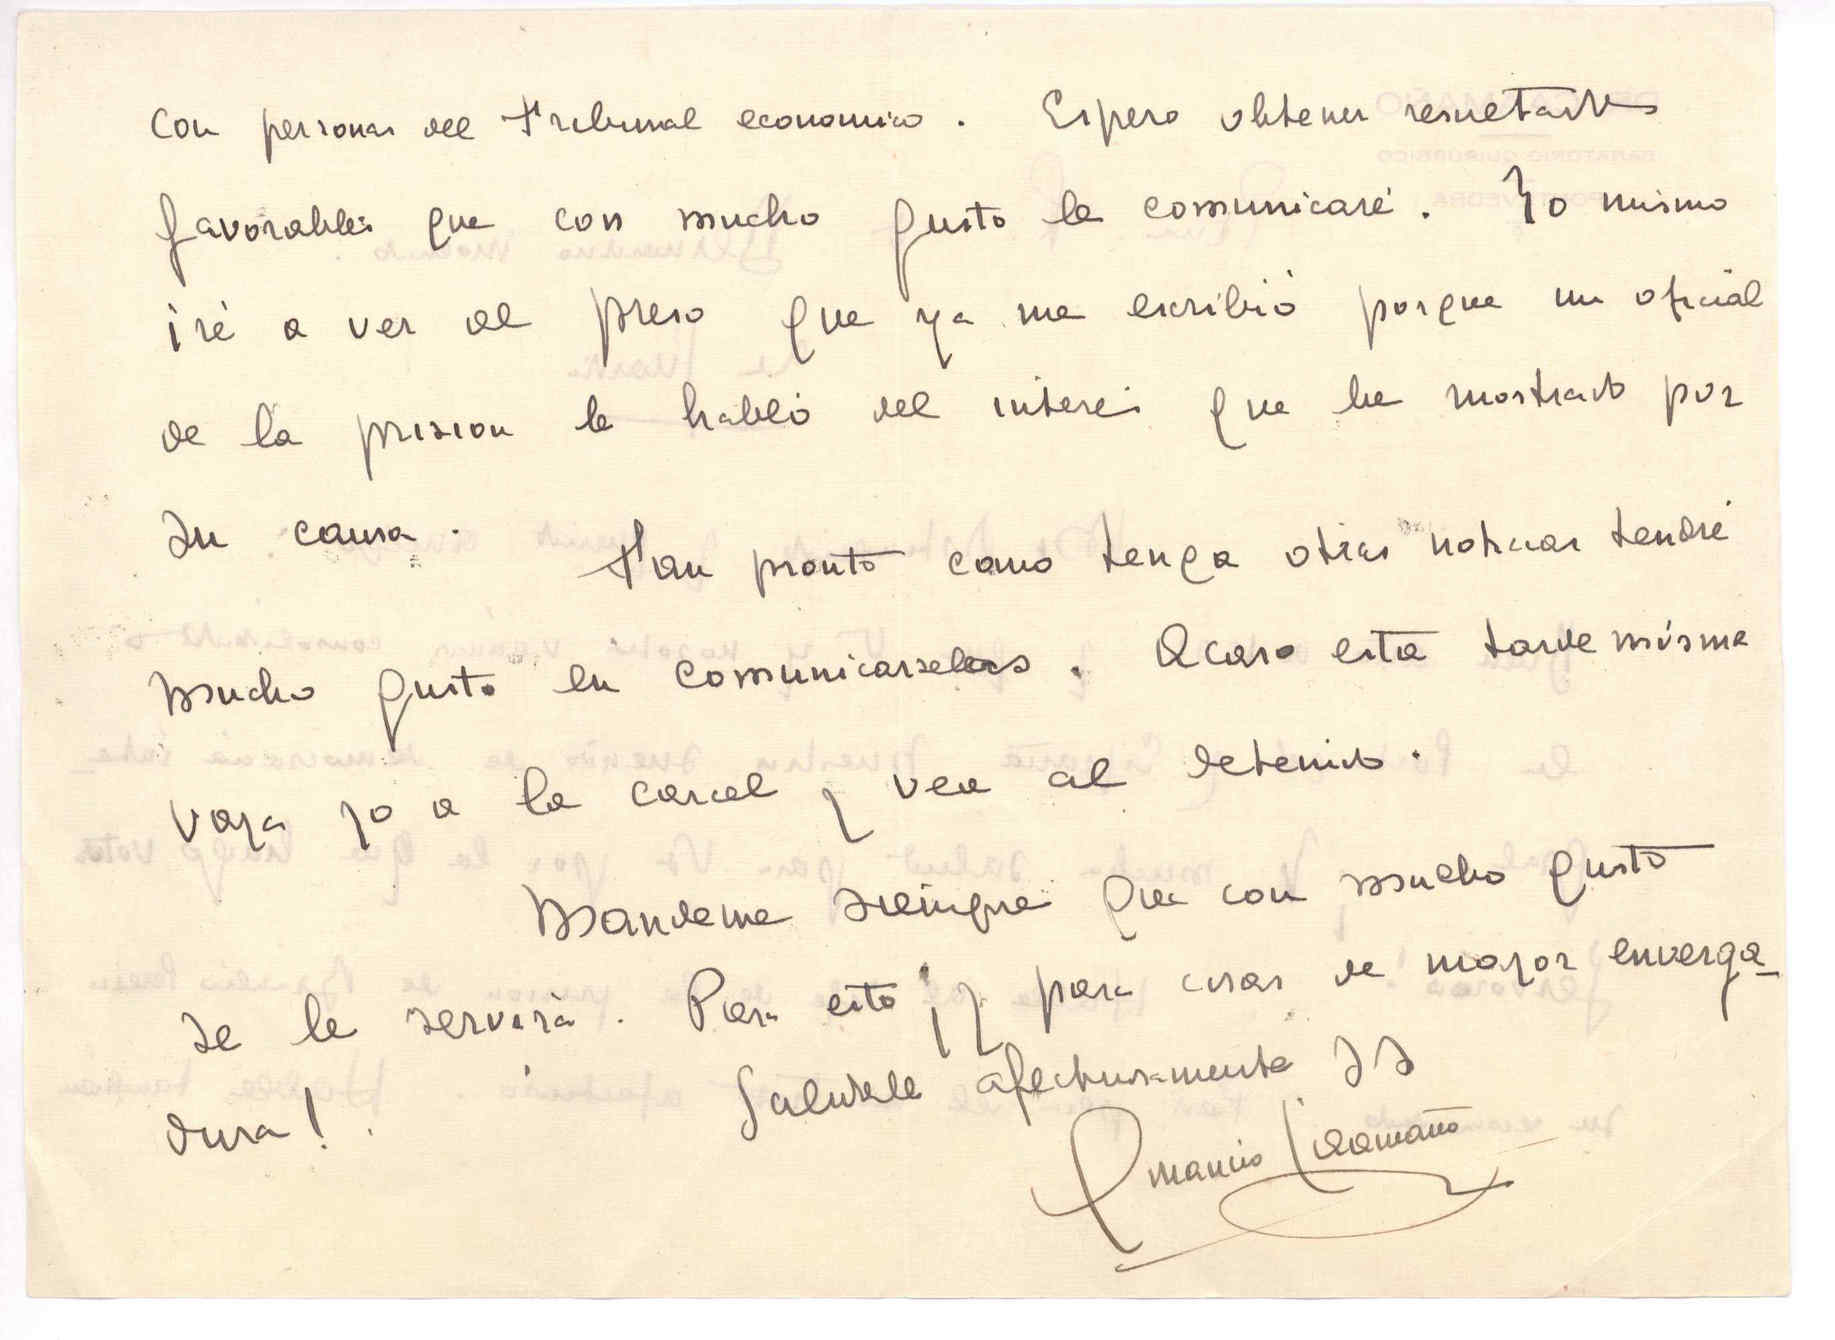 con personas del Tribunal economico. Espero obtener resultados
favorables que con mucho gusto le comunicaré. Yo mismo
iré a ver al preso que ya me escribió porque un oficial
de la prision le habló del interés que he mostrado por
su causa.
Tan pronto como tenga otras noticias tendré
mucho gusto en comunicarselas. Acaso esta tarde misma
vaya yo a la carcel y vea al detenido.
Mandeme siempre que con mucho gusto
se le servirá. Para esto ¡y para cosas de mayor enverga-
dura!.
Saludale afectuosamente SS
Amancio Caamaño